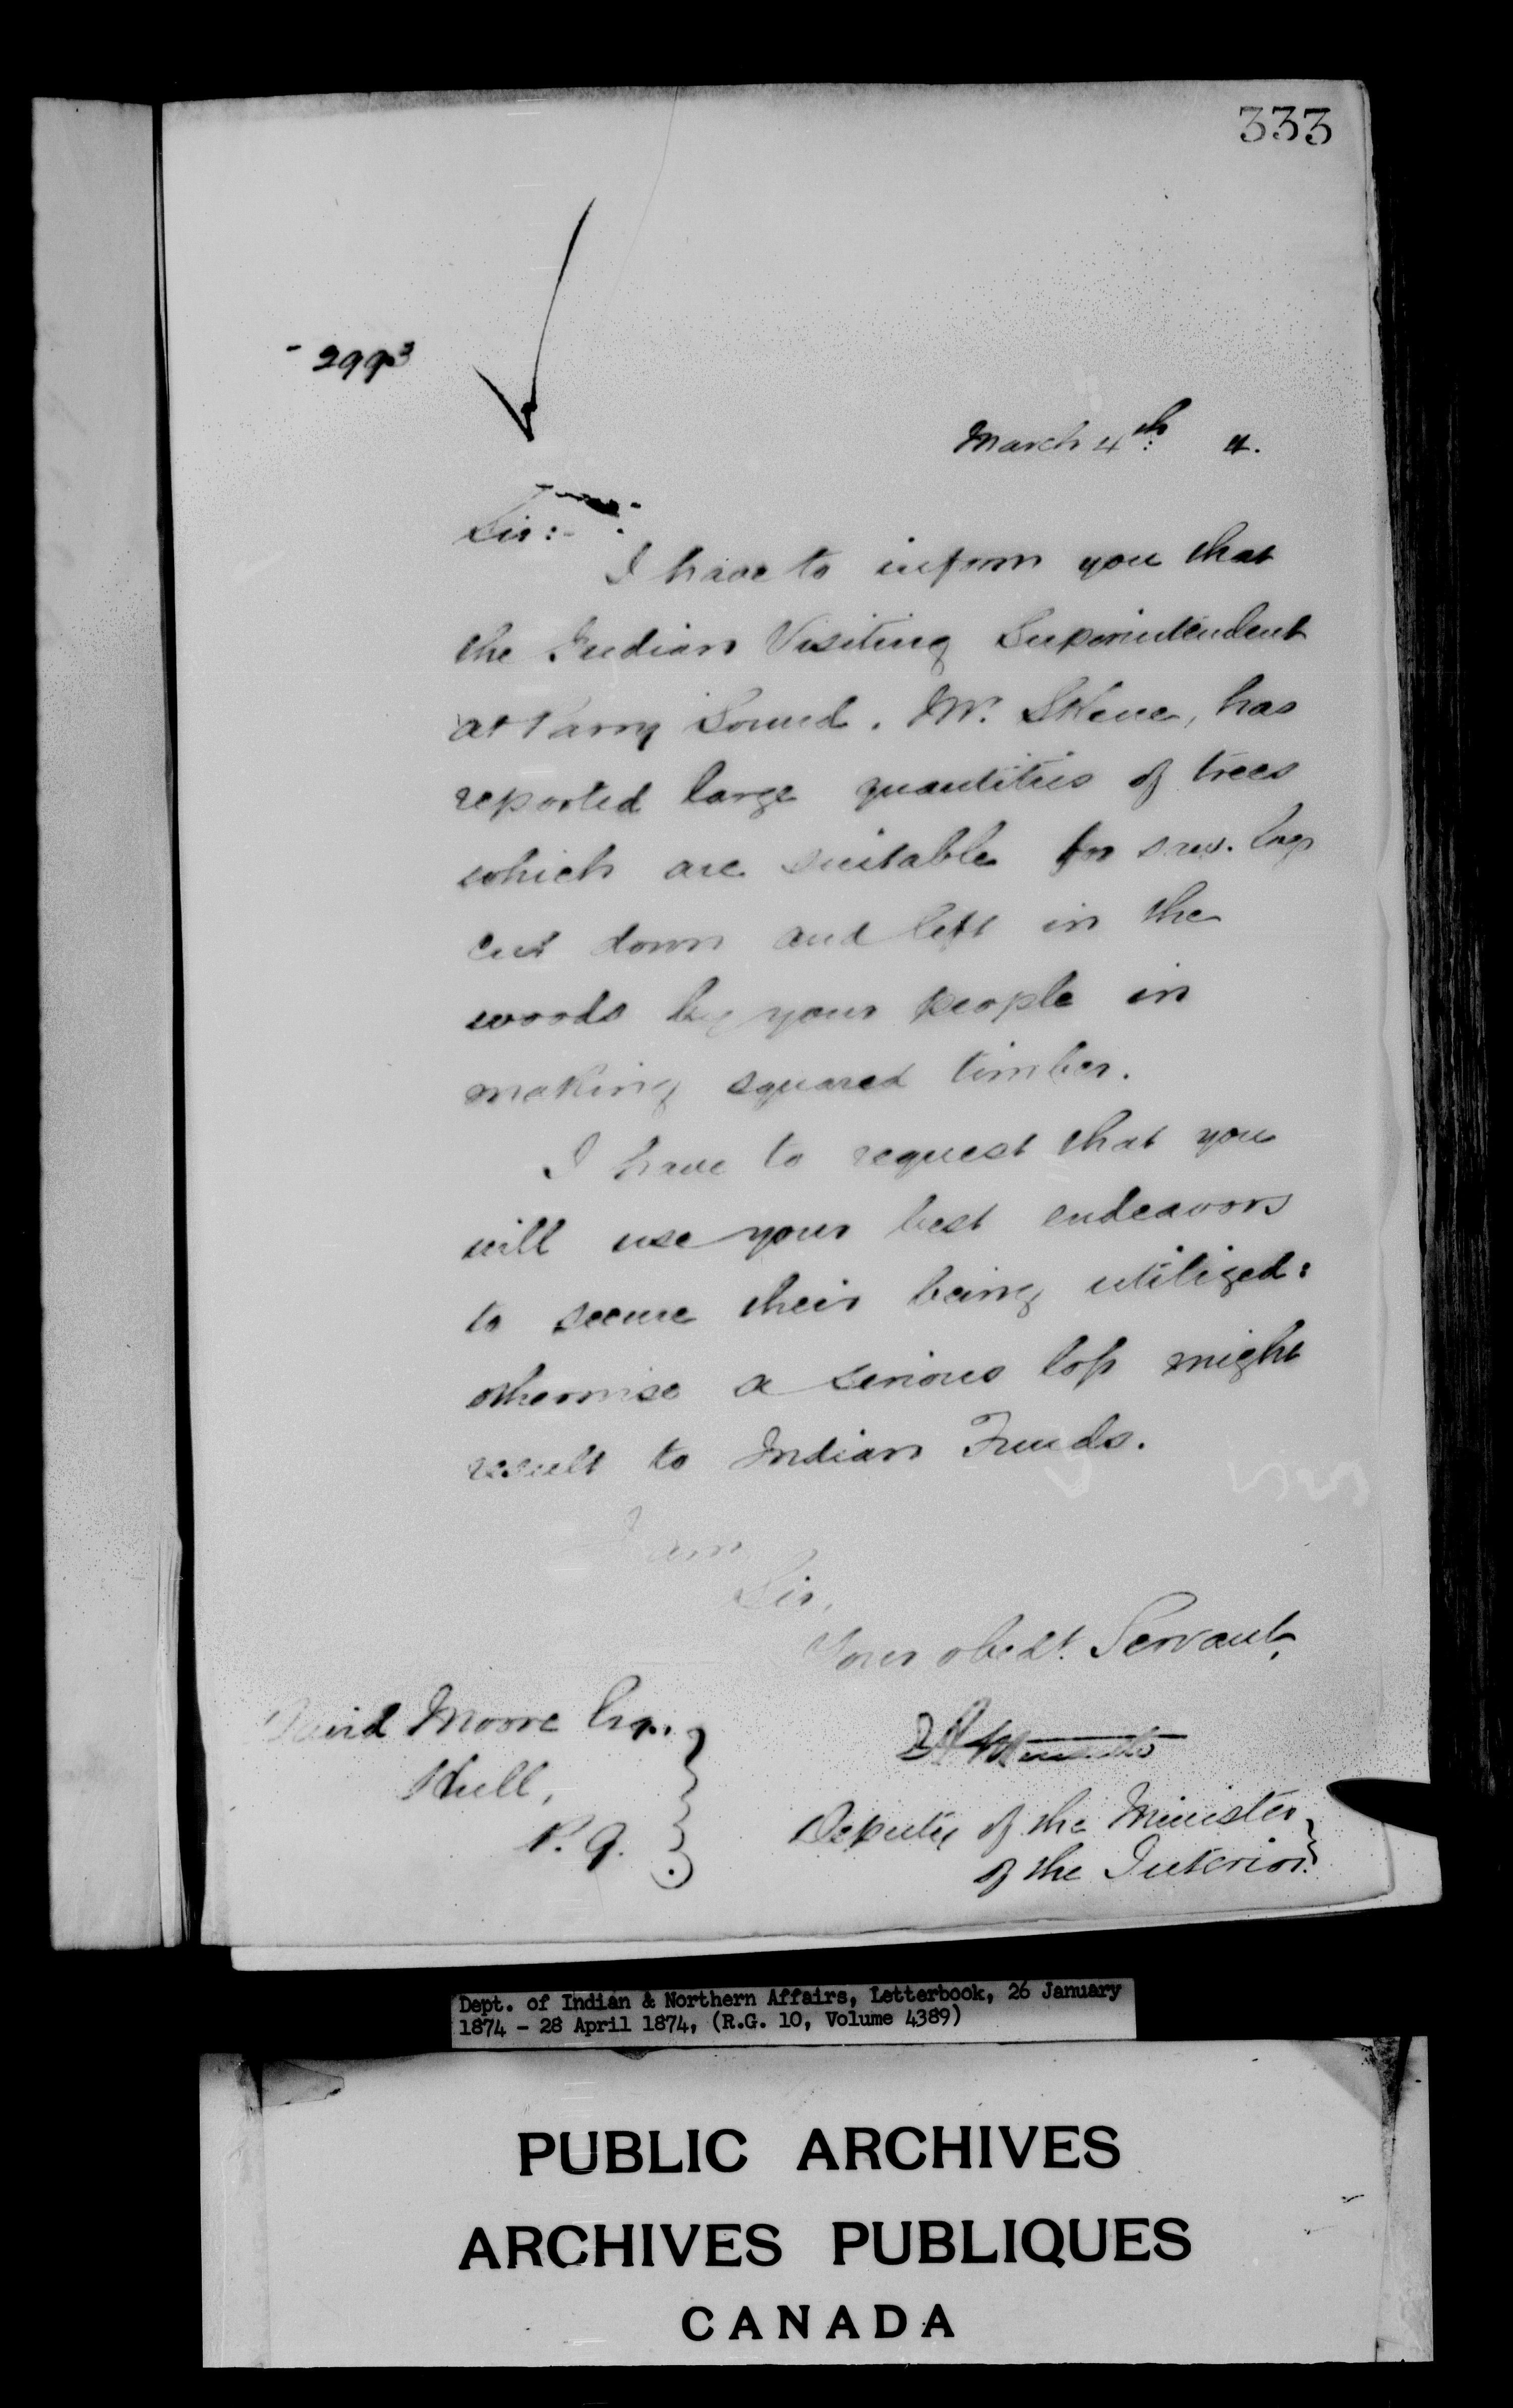 333
2993
March 4th: 4.
Sir:-
I have to inform you that
the Indian Visiting Superintendent
at Parry Sound. Mr. Skene, has
reported large quantities of trees
which are suitable for saw. logs
cut down and left in the
woods by your people in
making squared timber.
I have to request that you
will use your best endeavors
to secure their being utilized:
otherwise a serious loss might
result to Indian Funds.
I am
Sir,
Your obedt. Servant,
David Moore Esq.
Hull,
P.Q.
Deputy of the Minister
of the Interior.
Dept. of Indian & Northern Affairs, Letterbook, 26 January
1874 - 28 April 1874, (R.G. 10, Volume 4389)
PUBLIC ARCHIVES
ARCHIVES PUBLIQUES
CANADA